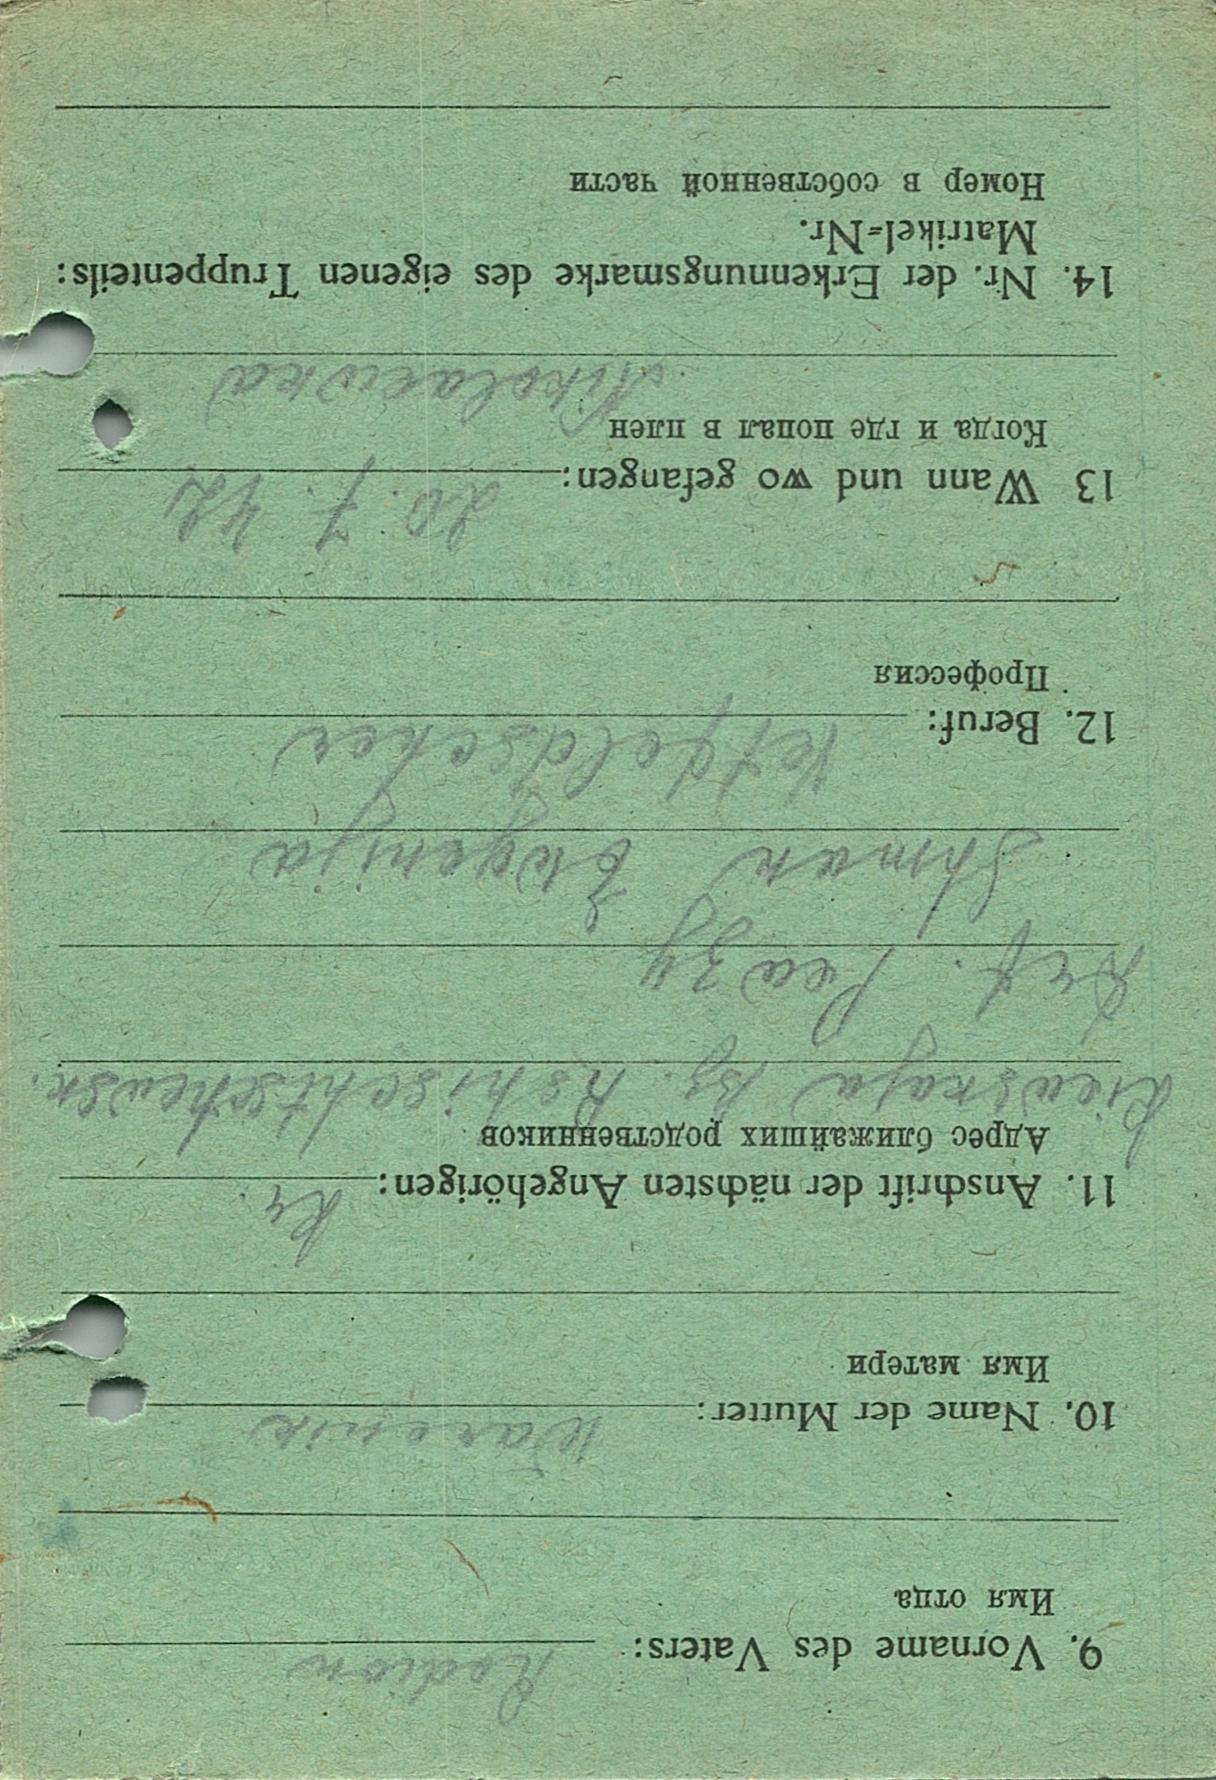 9. Vorname des Vaters: Rodion
Имя отца
10. Name der Mutter: Warenik
Имя матери
11. Anschrift der nächsten Angehörigen: Kr.
Адрес ближайших родственников
Kiewskaja Bz. Rshischtschewsk.
Shman Ewgenija
12. Beruf: Vetfeldscher
Профессия
13 Wann und wo gefangen: 20. 7. 42
Когда и где попал в плен
Nikolaewka
14. Nr. der Erkennungsmarke des eigenen Truppenteils:
Matrikel=Nr.
Номер в собственной части